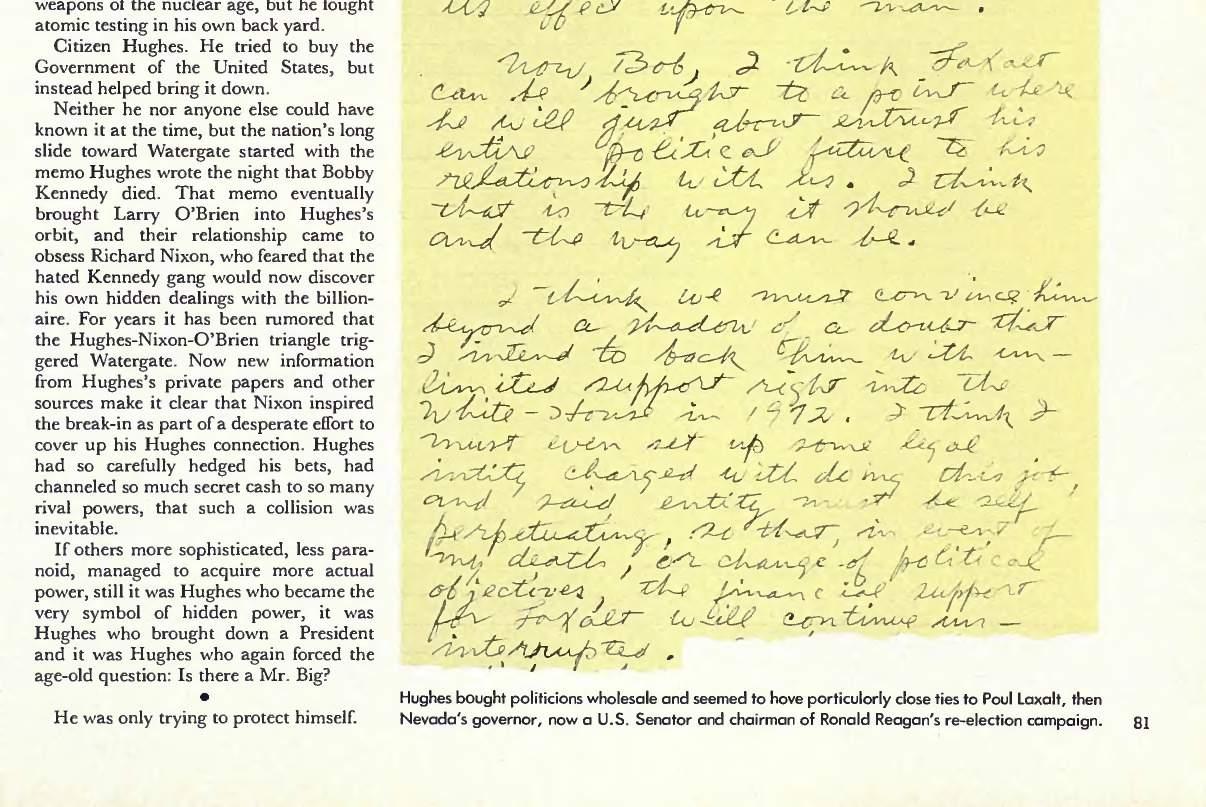 weapons of the nuclear age, but he fought
atomic testing in his own back yard.
Citizen Hughes. He tried to buy the
Government of the United States, but
instead helped bring it down.
Neither he nor anyone else could have
known it at the time, but the nation's long
slide toward Watergate started with the
memo Hughes wrote the night that Bobby
Kennedy died. That memo eventually
brought Larry O'Brien into Hughes's
orbit, and their relationship came to
obsess Richard Nixon, who feared that the
hated Kennedy gang would now discover
his own hidden dealings with the billion-
aire. For years it has been rumored that
the Hughes-Nixon-O'Brien triangle trig-
gered Watergate. Now new information
from Hughes's private papers and other
sources make it clear that Nixon inspired
the break-in as part of a desperate effort to
cover up his Hughes connection. Hughes
had so carefully hedged his bets, had
channeled so much secret cash to so many
rival powers, that such a collision was
inevitable.
If others more sophisticated, less para-
noid, managed to acquire more actual
power, still it was Hughes who became the
very symbol of hidden power, it was
Hughes who brought down a President
and it was Hughes who again forced the
age-old question: Is there a Mr. Big?
•
He was only trying to protect himself.
its effect upon the man.
Now, Bob, I think Laxalt
can be brought to a point where
he will just about entrust his
entire political future to his
relationship with us. I think
that is the way it should be
and the way it can be.
I think we must convince him
beyond a shadow of a doubt that
I intend to back him with un-
limited support right into the
White-House in 1972. I think I
must even set up some legal
intity charged with doing this job,
and said entity must be self
perpetuating, so that, in event of
my death, or change of political
objectives, the financial support
for Laxalt will continue un-
interrupted.
Hughes bought politicions wholesale and seemed to hove porticulorly close ties to Poul Laxalt, then
Nevada's governor, now a U.S. Senator and chairman of Ronald Reagan's re-election campaign.
81